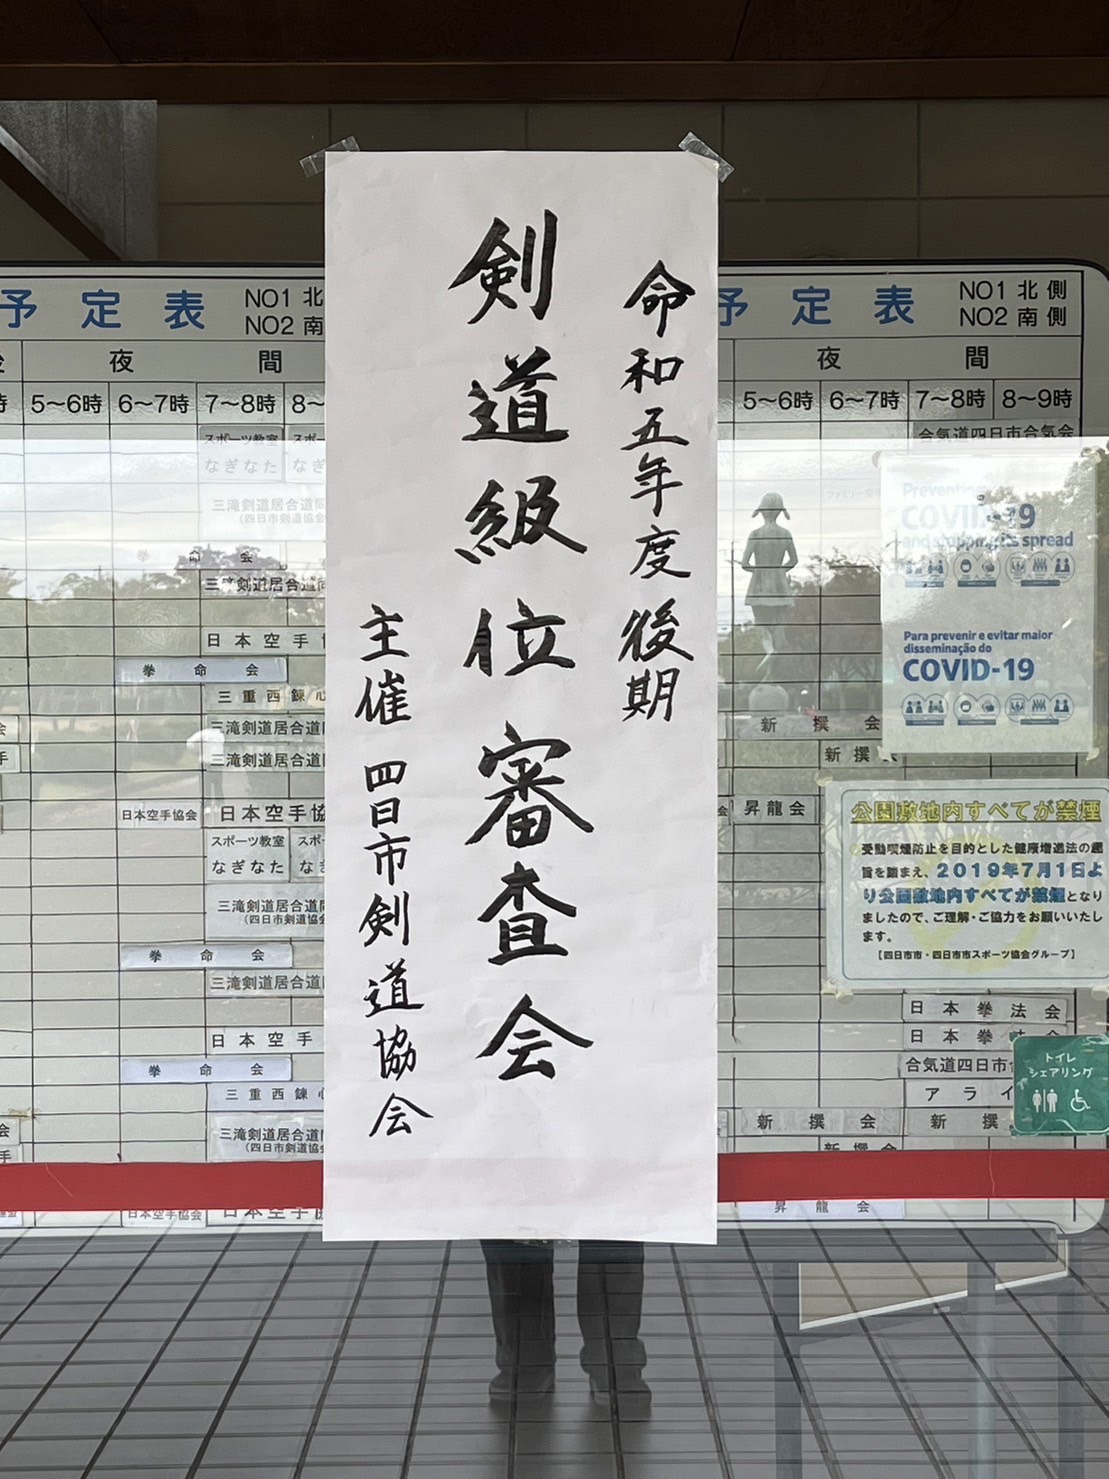 令和五年度後期
剣道級位審査会
主催 四日市剣道協会
予定表
NO1 北
NO2 南
夜間
5〜6時 6〜7時 7〜8時 8〜
スポーツ教室
なぎなた
三滝剣道居合道同
(四日市剣道協会
拳命会
三滝剣道居合道同
日本空手協
拳命会
三重西錬心
三滝剣道居合道同
三滝剣道居合道同
日本空手協会 日本空手協
スポーツ教室
なぎなた
三滝剣道居合道同
(四日市剣道協会
拳命会
三滝剣道居合道同
日本空手
拳命会
三重西錬心
三滝剣道居合道同
(四日市剣道協会
日本空手協会 日本空手協
予定表
NO1 北側
NO2 南側
夜間
5〜6時 6〜7時 7〜8時 8〜9時
合気道四日市合気会
新撰会
新撰
昇龍会
日本拳法会
合気道四日市
アライ
新撰会 新撰
新撰会
昇龍会
Preventing
COVID-19
and stopping its spread
Para prevenir e evitar maior
disseminação do
COVID-19
公園敷地内すべてが禁煙
受動喫煙防止を目的とした健康増進法の趣
旨を踏まえ、2019年7月1日よ
り公園敷地内すべてが禁煙となり
ましたので、ご理解・ご協力をお願いいたし
ます。
【四日市市・四日市市スポーツ協会グループ】
トイレ
シェアリング